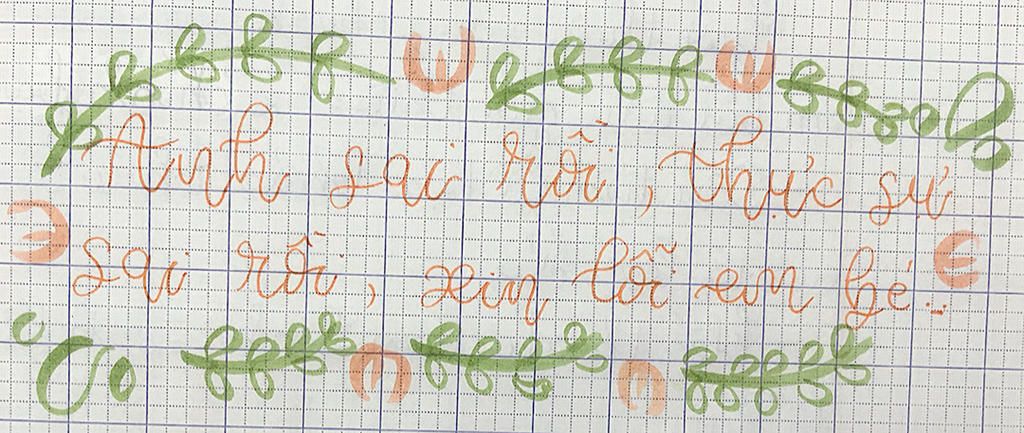 Anh sai rồi, thực sự
sai rồi, xin lỗi em bé..